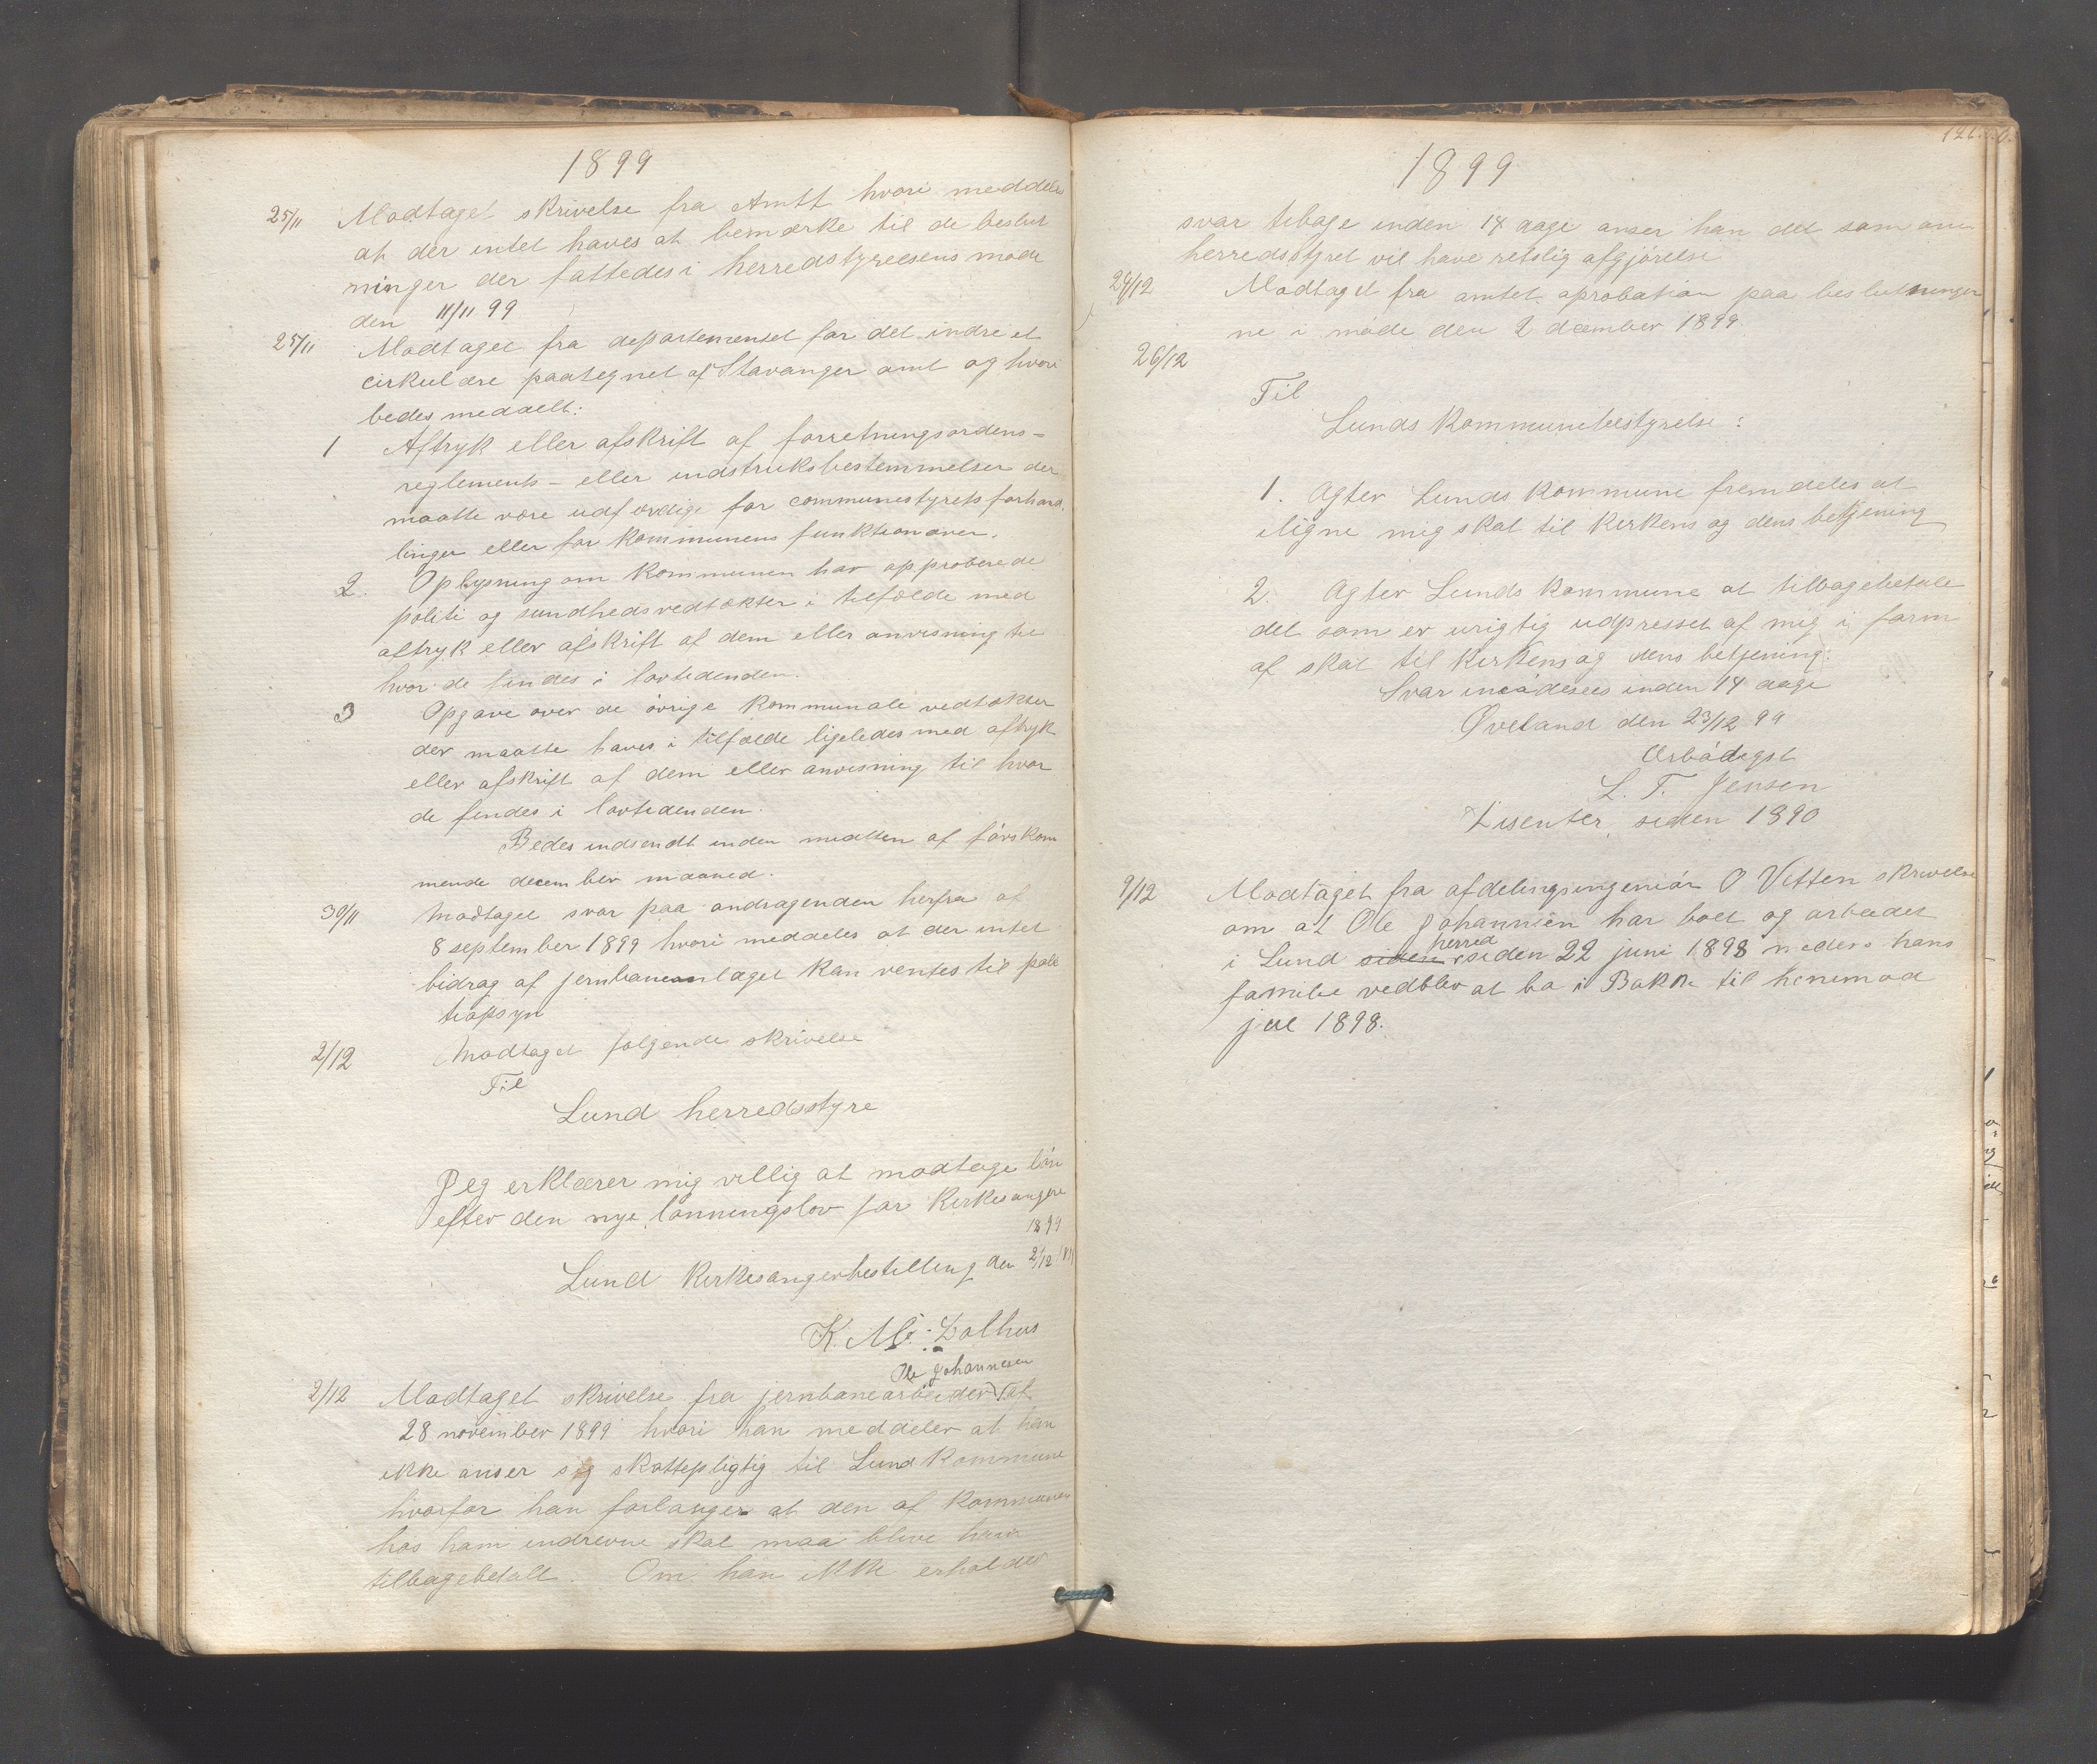 1899
25/11 Modtaget skrivelse fra Amtt hvori meddeles
at der intet haves at bemærke til de beslut
ninger der fattedes i herredstyreesens møde
den 11/11 99
25/11 Modtaget fra departementet for det indre et
cirkulære paategnet af Stavanger amt og hvori
bedes meddelt:
1 Aftryk eller afskrift af forretningsordens-
reglements- eller indstruksbestemmelser der
maatte være udfærdige for communestyrets forhand.
linger eller for kommunens funktionærer.
2. Oplysning om kommunen har approberede
politi og sundhedsvedtækter i tilfælde med
aftryk eller afskrift af dem eller anvisning til
hvor de findes i lovtidenden.
3 Opgave over de øvrige kommunale vedtækter
der maatte haves i tilfælde ligeledes med aftryk
eller afskrift af dem eller anvisning til hvor
de findes i lovtidenden.
Bedes indsendt inden midtten af førskom
mende december maaned.
30/11 Modtaget svar paa andragenden herfra af
8 september 1899 hvori meddeles at der intet
bidrag af jernbaneanlæget kan ventes til poli
tiopsyn
2/12 Modtaget følgende skrivelse
Til
Lund herredsstyre
Jeg erklærer mig villig at modtage løn
efter den nye lønningslov for Kirkesangere
1899
Lund Kirkesangerbestilling den 2/12
K. M. Dalhus
Ole Johannesen
2/12 Modtaget skrivelse fra jernbanearbeider af
28 november 1899 hvori han meddeler at han
ikke anser sig skattepligtig til Lund kommune
hvorfor han forlanger at den af kommunen
hos ham indrevne skat maa blive ham
tilbagebetalt. Om han ikke erholder
1899
svar tibage inden 14 dage anser han det som om
herredsstyret vil have retslig afgjørelse
24/12 Modtaget fra amtet aprobation paa beslutninger
ne i møde den 2 dcember 1899.
26/12
Til
Lunds Kommunebestyrelse:
1. Agter Lunds kommune fremdeles at
iligne mig skat til kirkens og dens betjening
2. Agter Lunds kommune at tilbagebetale
det som er urigtig udpresset af mig i form
af skat til kirkens og dens betjening.
Svar imødesees inden 14 dage
Øveland den 23/12 99
Ærbødigst
L. T. Jensen
Disenter, siden 1890
9/12 Modtaget fra afdelingsingeniør O Vitten skrivelse
om at Ole Johannsen har boet og arbeidet
herred
i Lund siden siden 22 juni 1898 medens hans
familie vedblev at bo i Bakke til henimod
jul 1898.